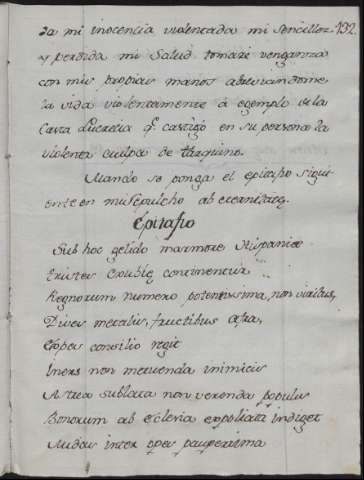 da mi inocencia violentada mi sencillez 132.
y perdida mi Salud tomaré venganza
con mis propias manos abreviandome
la vida violentamente á egemplo de la
Casta Lucrecia q.e castigó en su persona la
violenta culpa de tarquino.
Mando se ponga el epitafio sigui
ente en mi sepulcro ab eternitate.
Epitafio
Sub hoc gelido marmore Hispaniæ
Existes conviventia
Regnorum numero potentissima, non viribus,
Dives metalis, fructibus
Expes consilio regit
Iners non metuenda inimicis
Astrea sublata non veronda populis
Bonorum ab Eclesia expoliata indiget
Nudas inter opes pauperrima